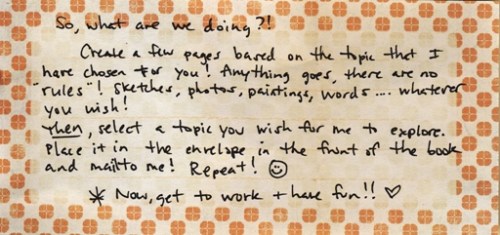 So, what are we doing?!
Create a few pages based on the topic that I
have chosen for you! Anything goes, there are no
"rules"! Sketches, photos, paintings, words.... whatever
you wish!
Then, select a topic you wish for me to explore.
Place it in the envelope in the front of the book
and mail to me! Repeat! ☺
* Now, get to work + have fun!! ♡